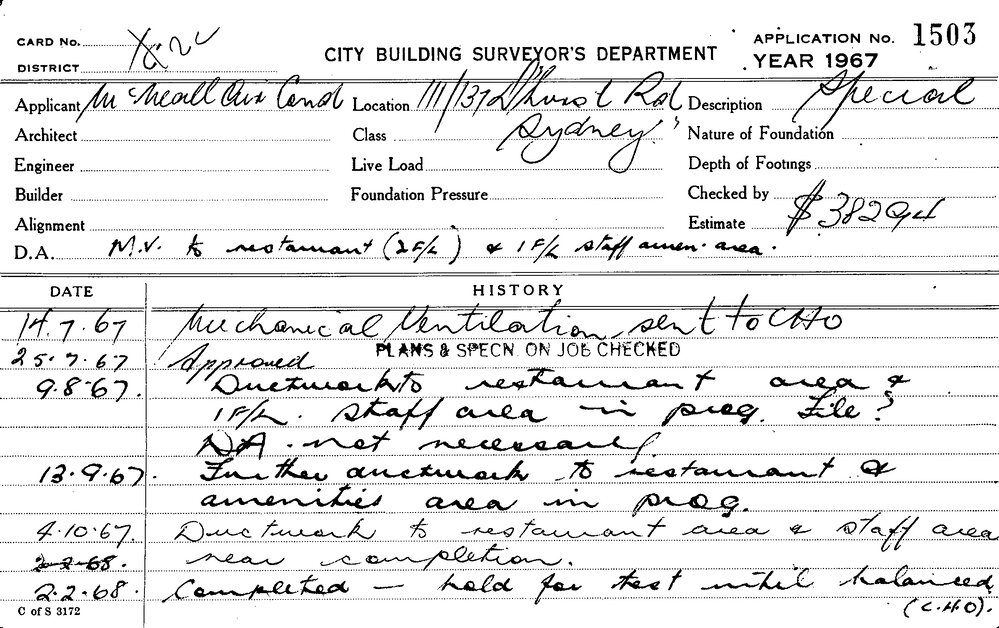 CARD No.
DISTRICT
CITY BUILDING SURVEYOR'S DEPARTMENT
APPLICATION No. 1503
YEAR 1967
Applicant McNeall Air Cond Location 111/137 D'hurst Rd Description Special
Architect Class Sydney Nature of Foundation
Engineer Live Load Depth of Footings
Builder Foundation Pressure Checked by
Alignment Estimate $38294
D.A. M.V. to restaurant (2 F/L) & 1 F/L staff amen. area.
DATE HISTORY
14.7.67 Mechanical Ventilation sent to CHO
25.7.67 Approved PLANS & SPECN. ON JOB CHECKED
9.8.67. Ductwork to restaurant area &
1 F/L. staff area in prog. File?
DA. not necessary
13.9.67. Further ductwork to restaurant &
amenities area in prog.
4.10.67. Ductwork to restaurant area & staff area
2-2-68. near completion.
2.2.68. Completed — hold for test until balanced
C of S 3172 (C.H.O).